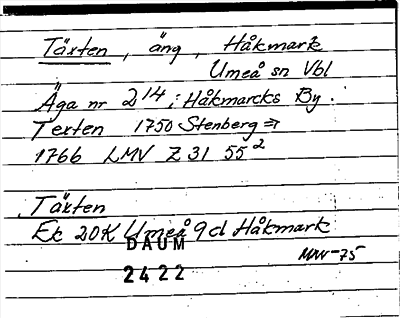 Täxten, äng, Håkmark
Umeå sn Vbl
Äga nr 214, i Håkmarcks By.
Texten 1750 Stenberg ⇒
1766 LMV Z 31 55²
Täxten
Ek 20K Umeå 9d Håkmark
MW-75
DAUM
2422